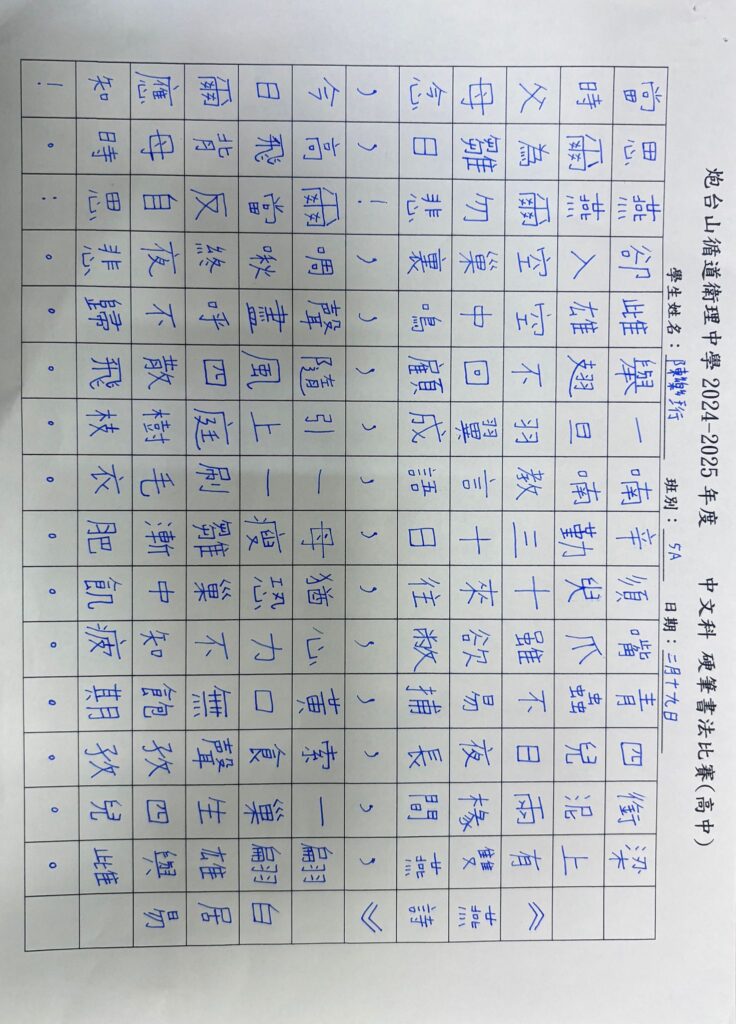 炮台山循道衛理中學 2024-2025 年度 中文科 硬筆書法比賽(高中)
學生姓名： 班別：5A 日期：三月十九日
《燕詩》 白居易
梁上有雙燕，翩翩雄與雌。
銜泥兩椽間，一巢生四兒。
四兒日夜長，索食聲孜孜。
青蟲不易捕，黃口無飽期。
嘴爪雖欲敝，心力不知疲。
須臾十來往，猶恐巢中飢。
辛勤三十日，母瘦雛漸肥。
喃喃教言語，一一刷毛衣。
一旦羽翼成，引上庭樹枝。
舉翅不回顧，隨風四散飛。
雌雄空中鳴，聲盡呼不歸。
卻入空巢裏，啁啾終夜悲。
燕燕爾勿悲！爾當反自思：
思爾為雛日，高飛背母時。
當時父母念，今日爾應知！